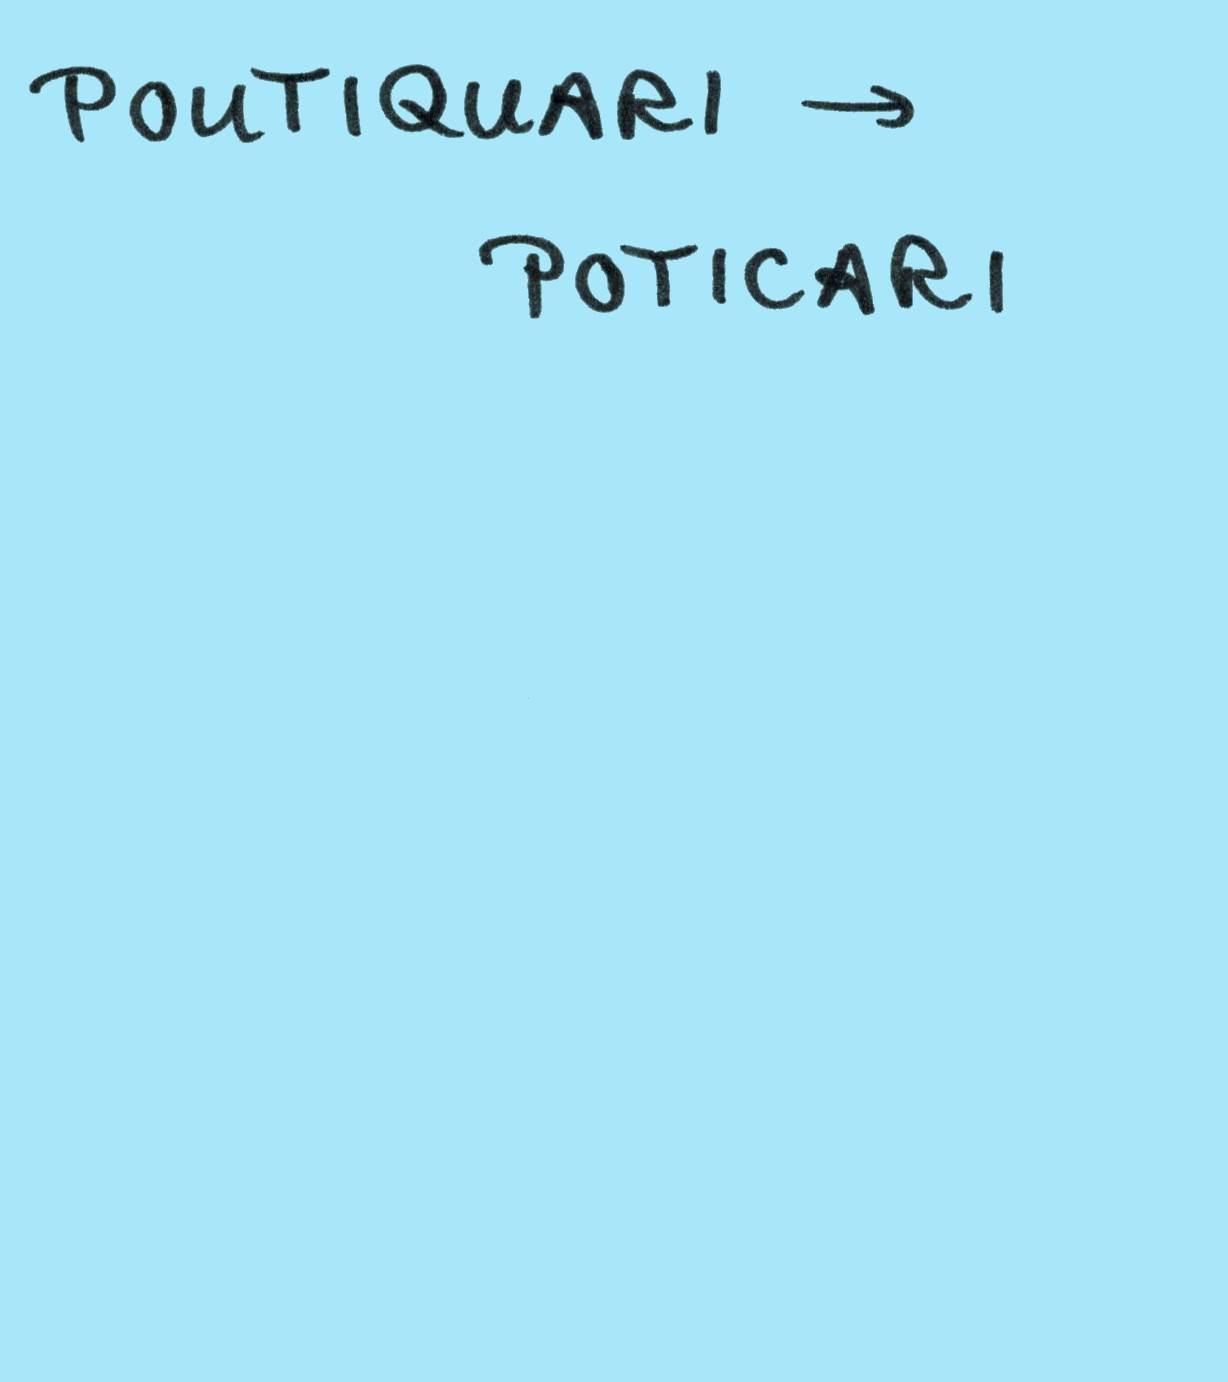 POUTIQUARI →
POTICARI